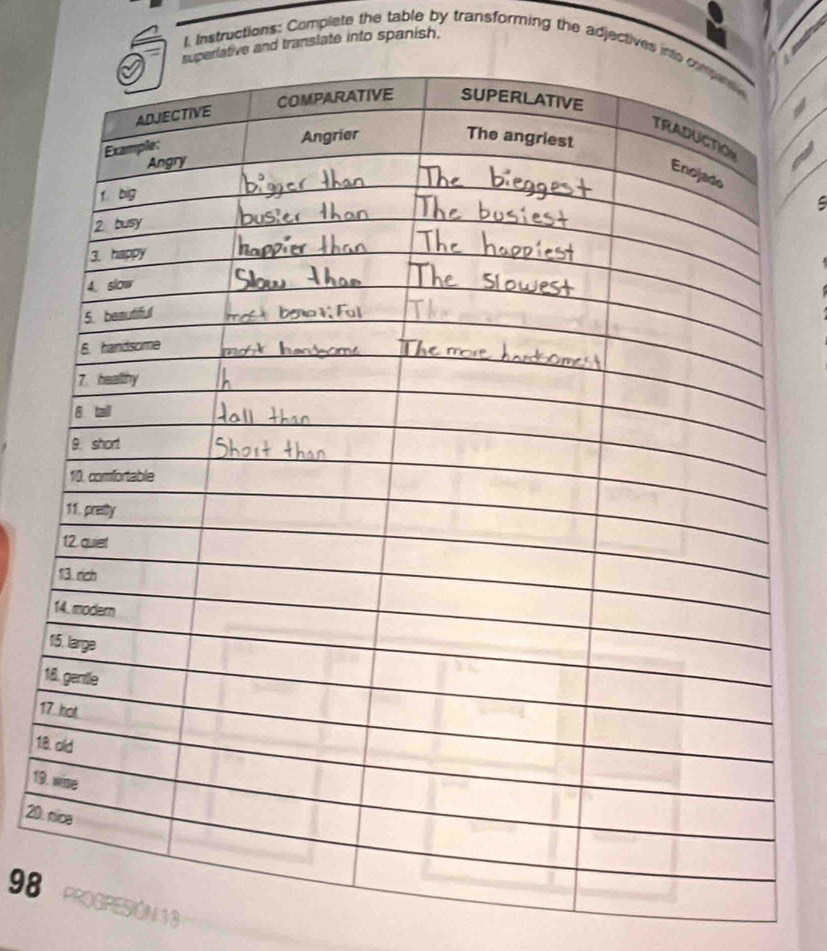 I. Instructions: Complete the table by transforming the adjectives into comparative
superlative and translate into spanish.
ADJECTIVE COMPARATIVE SUPERLATIVE TRADUCTION
Example:
Angry Angrier The angriest Enojado
1. big bigger than The bieggest
2. busy busier than The busiest
3. happy happier than The happiest
4. slow Slow than The slowest
5. beautiful most The
6. handsome most handsome The more handsomest
7. healthy h
8. tall tall than
9. short Short than
10. comfortable
11. pretty
12. quiet
13. rich
14. modern
15. large
16. gentle
17. hot
18. old
19. wise
20. nice
98 PROGRESIÓN 13